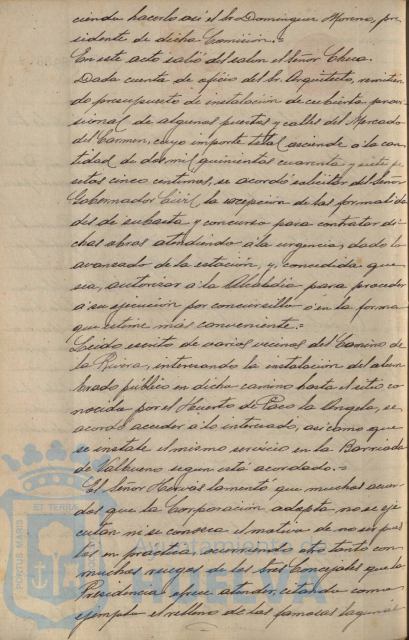 ciendo hacerlo así el Sr. Dominguez Moreno, pre-
sidente de dicha Comisión.=
En este acto salió del salon el Señor Checa.
Dada cuenta de oficio del Sr. Arquitecto, remitien-
do presupuesto de instalación de cubierta provi-
sional de algunos puestos y calles del Mercado
del Carmen, cuyo importe total asciende á la can-
tidad de dos mil quinientas cuarenta y siete pe-
setas cinco centimos, se acordó solicitar del Señor
Gobernador Civil la excepción de las formalida-
des de subasta y concurso para contratar di-
chas obras atendiendo á la urgencia, dado lo
avanzado de la estación, y, concedida que
sea, autorizar á la Alcaldia para proceder
á su ejecución por concursillo ó en la forma
que estime más conveniente.=
Leido escrito de varios vecinos del Camino de
la Rivera, interesando la instalación del alum-
brado público en dicho camino hasta el sitio co-
nocido por el Huerto de Paco la Angela, se
acordó acceder á lo interesado, asi como que
se instale el mismo servicio en la Barriada
de Valbueno segun está acordado.=
El Señor Hervás lamentó que muchos acuer-
dos que la Corporación adopta no se eje-
cutan ni se conozca el motivo de no ser pues-
tos en práctica, ocurriendo otro tanto con
muchos ruegos de los Sres. Concejales que la
Presidencia ofrece atender, citando como
ejemplo el relleno de las famosas lagunas
PORTUS MARIS
ET TERRA
Ayuntamiento de
HUELVA